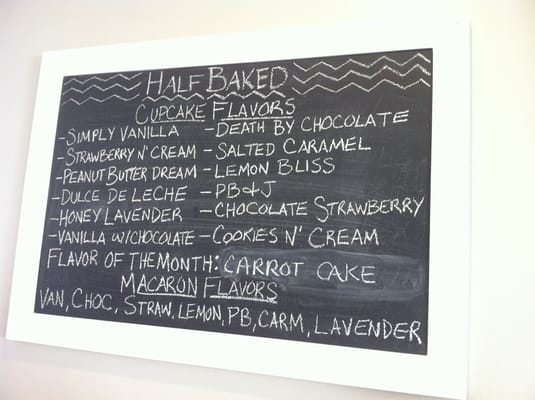 HALF BAKED
CUPCAKE FLAVORS
-SIMPLY VANILLA
-STRAWBERRY N' CREAM
-PEANUT BUTTER DREAM
-DULCE DE LECHE
-HONEY LAVENDER
-VANILLA W/CHOCOLATE
-DEATH BY CHOCOLATE
-SALTED CARAMEL
-LEMON BLISS
-PB&J
-CHOCOLATE STRAWBERRY
-COOKIES N' CREAM
FLAVOR OF THE MONTH: CARROT CAKE
MACARON FLAVORS
VAN, CHOC, STRAW, LEMON, PB, CARM, LAVENDER